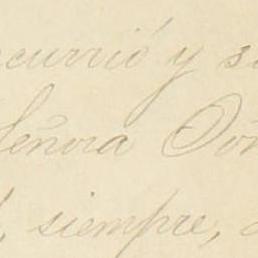 ocurrió y s
Señora Doñ
, siempre,